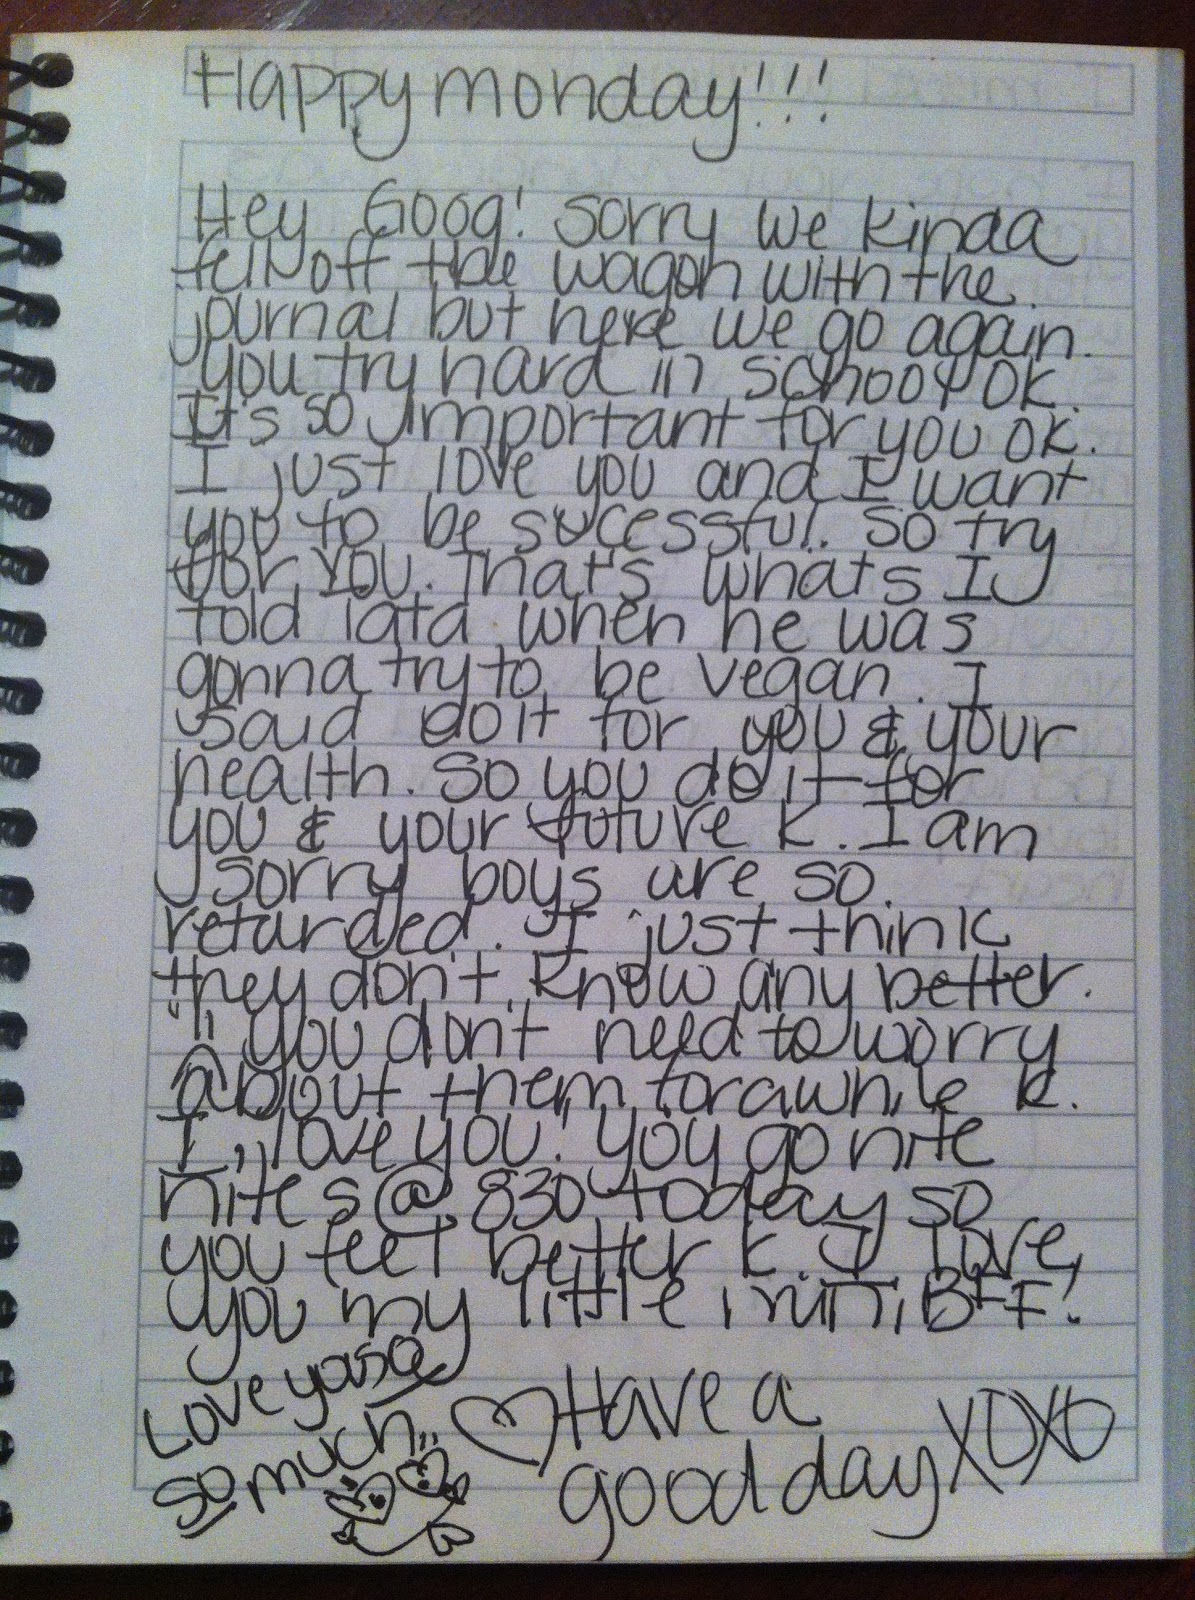 Happy monday!!!
Hey Goog! Sorry we kinda
fell off the wagon with the
journal but here we go again.
you try hard in school ok.
It's so important for you ok.
I just love you and I want
you to be sucessful. so try
for you. That's whats I
told tata when he was
gonna try to be vegan. I
said do it for you & your
health. So you do it for
you & your future k. I am
sorry boys are so
retarded. I just think
they don't know any better.
you don't need to worry
about them for awhile k.
I love you! you go nite
nites @ 830 today so
you feel better k. I love
you my little BFF!
Love ya so
so much
Have a
good day XOXO